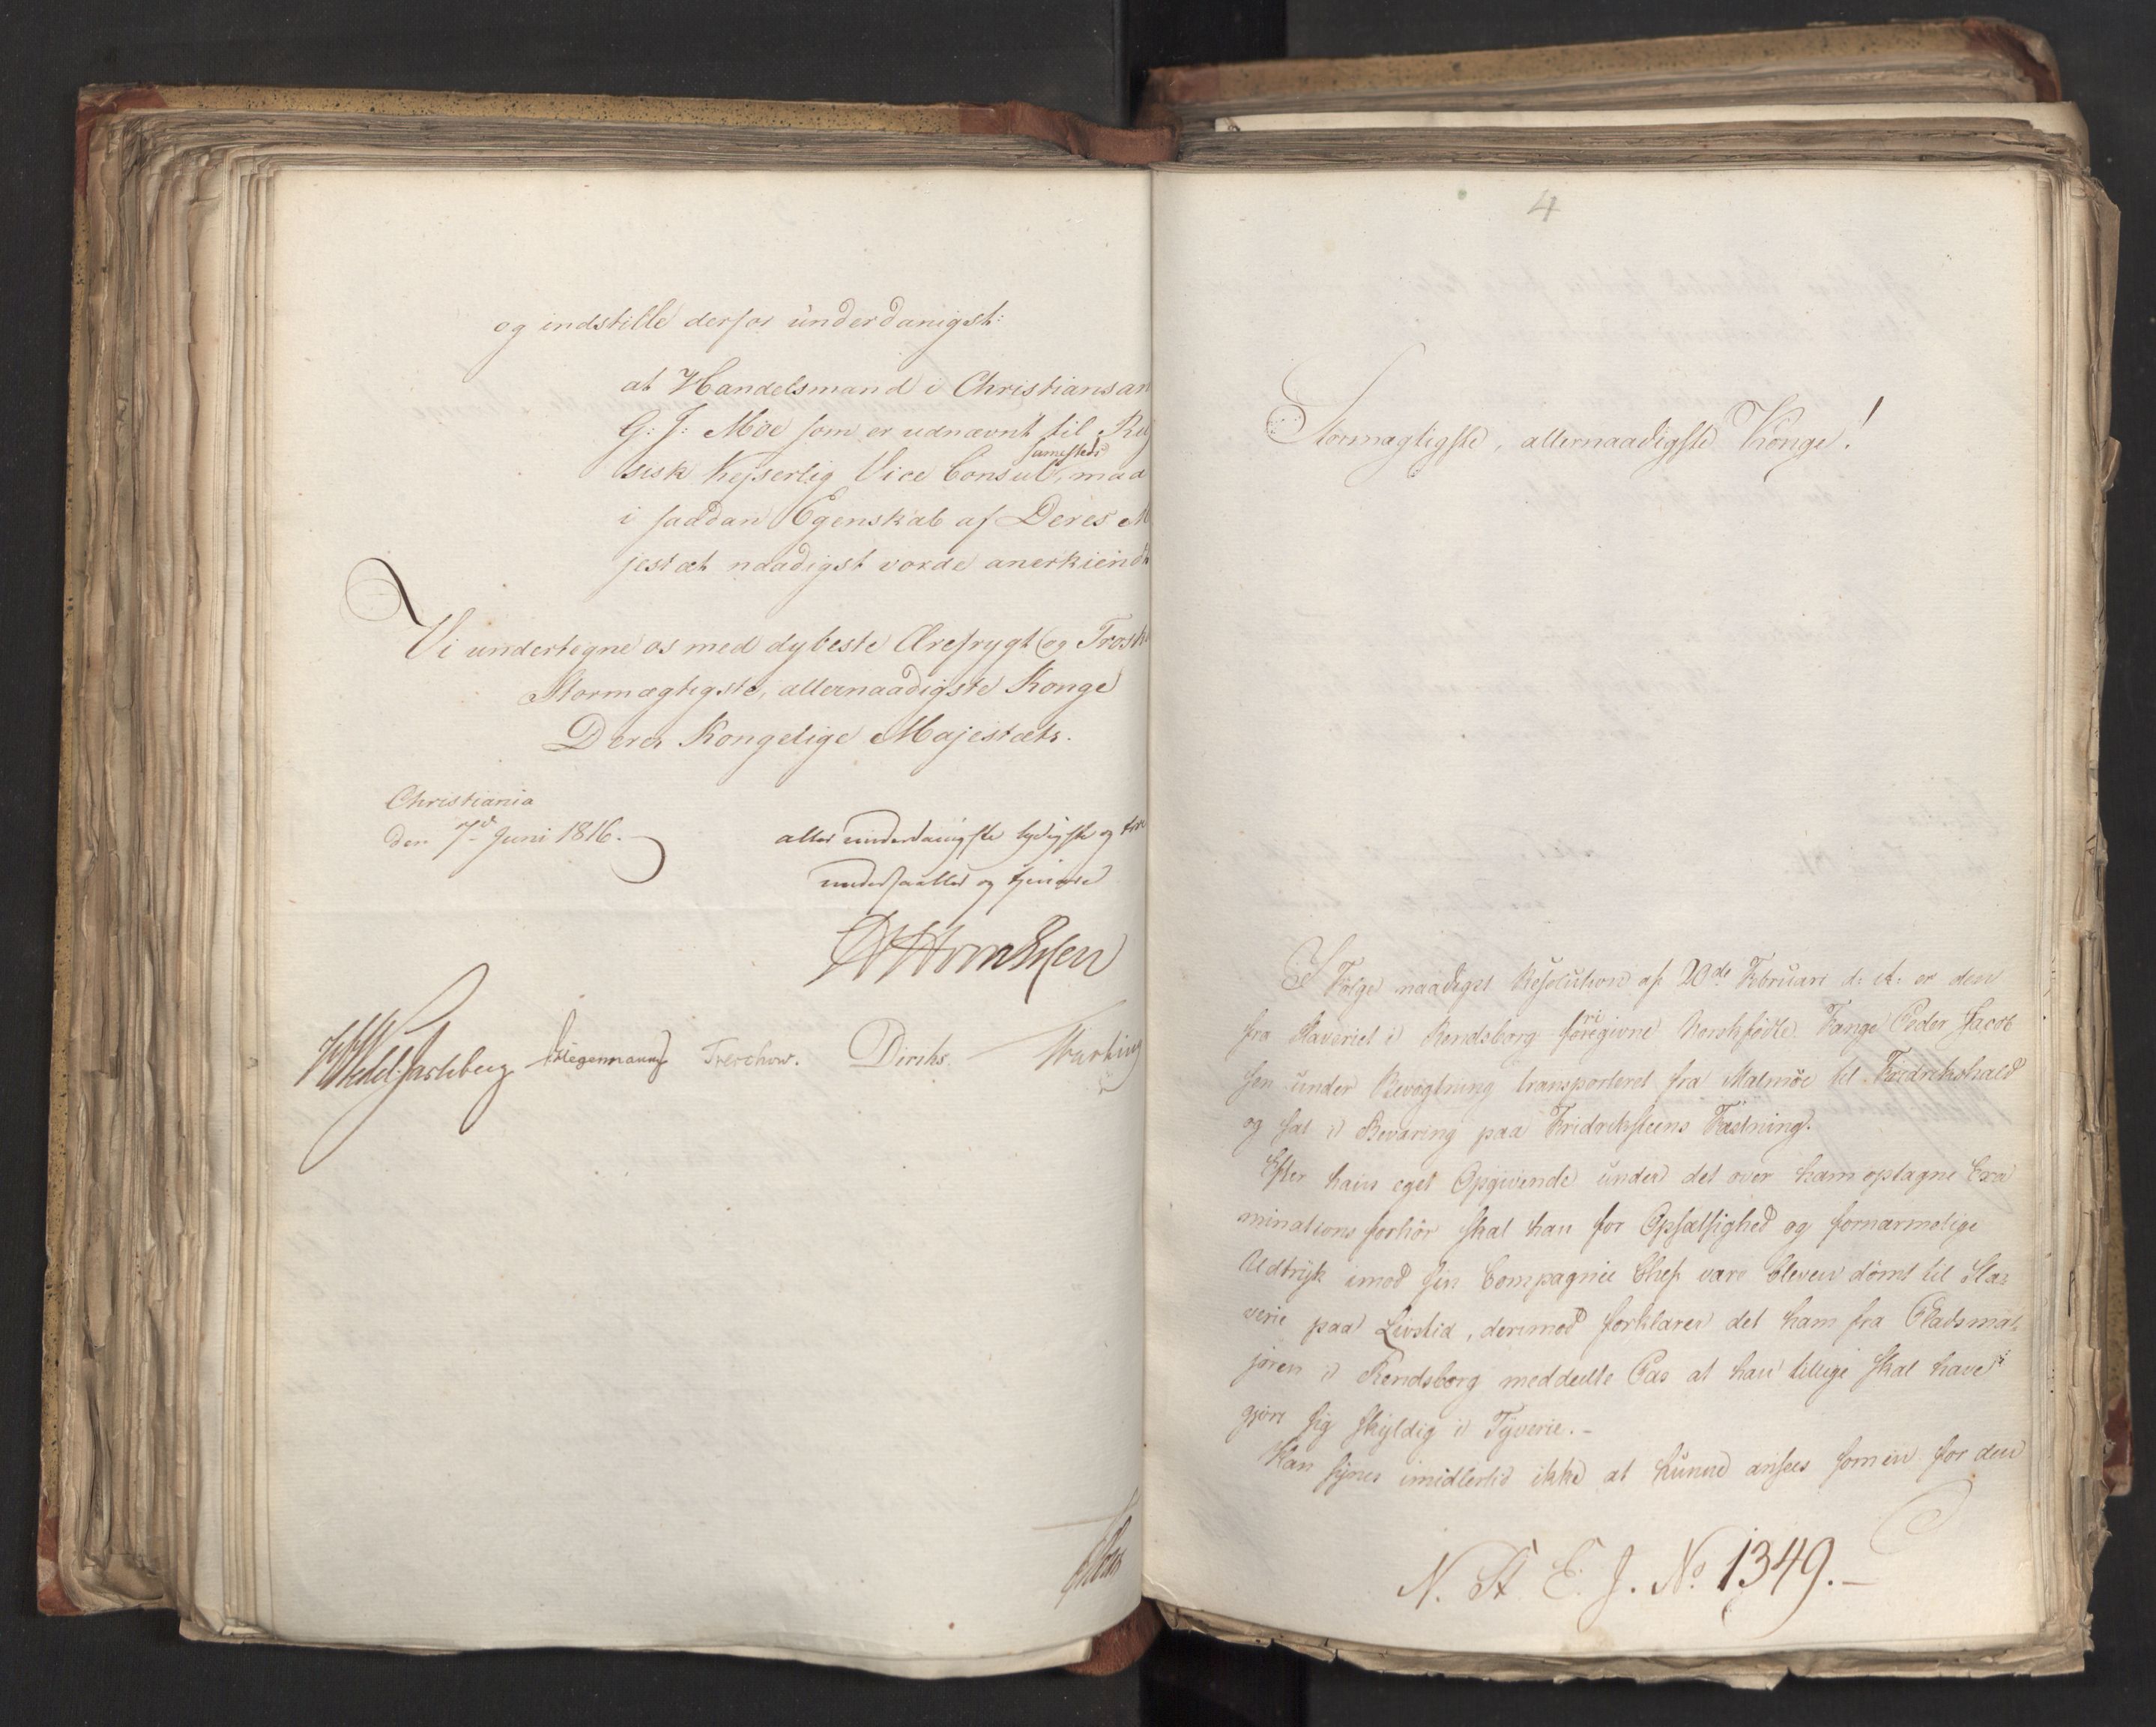 og indstille derfor underdanigst:
at Handelsmand i Christiansan
G: J: Moe som er udnævnt til Rus
samesteds
sisk Kejserlig Vice Consul, maa
i saadan Egenskab af Deres M
jestæt naadigst vorde anerkiendt
Vi undertegne os med dybeste Ærefrygt og Trosk
Stormægtigste, allernaadigste Konge
Deres Kongelige Majestæts.
Christiania
den 7de Juni 1816.
allerunderdanigste lydigste og tro
undersaatter og tjenere
M Sommhielm
HWedel Jarlsberg Hegermann Treschow. Diriks
4
Stormægtigste, allernaadigste Konge!
I Følge naadigst Resolution af 20de Februari d: A: er den
fra Slaveriet i Rendsborg frigivne Norskfødte Fange Peder Jacob
sen under Bevogtning transporteret fra Malmöe til Fredrikshald
og sat i Bevaring paa Fridrikssteens Fæstning.
Efter hans eget Opgivende under det over ham optagne Exa
minations forhör skal han for Opsætsighed og fornærmelige
Udtryk imod sin Compagnie Chef være bleven dömt til Sla
verie paa Livstid, derimod forklarer det ham fra Pladsmat
joren i Rendsborg meddeelte Pas at han tillige skal have
gjort sig skyldig i Tyverie.-
Han synes imidlertid ikke at kunne ansees som en for den
N. St E. J. No 1349.-